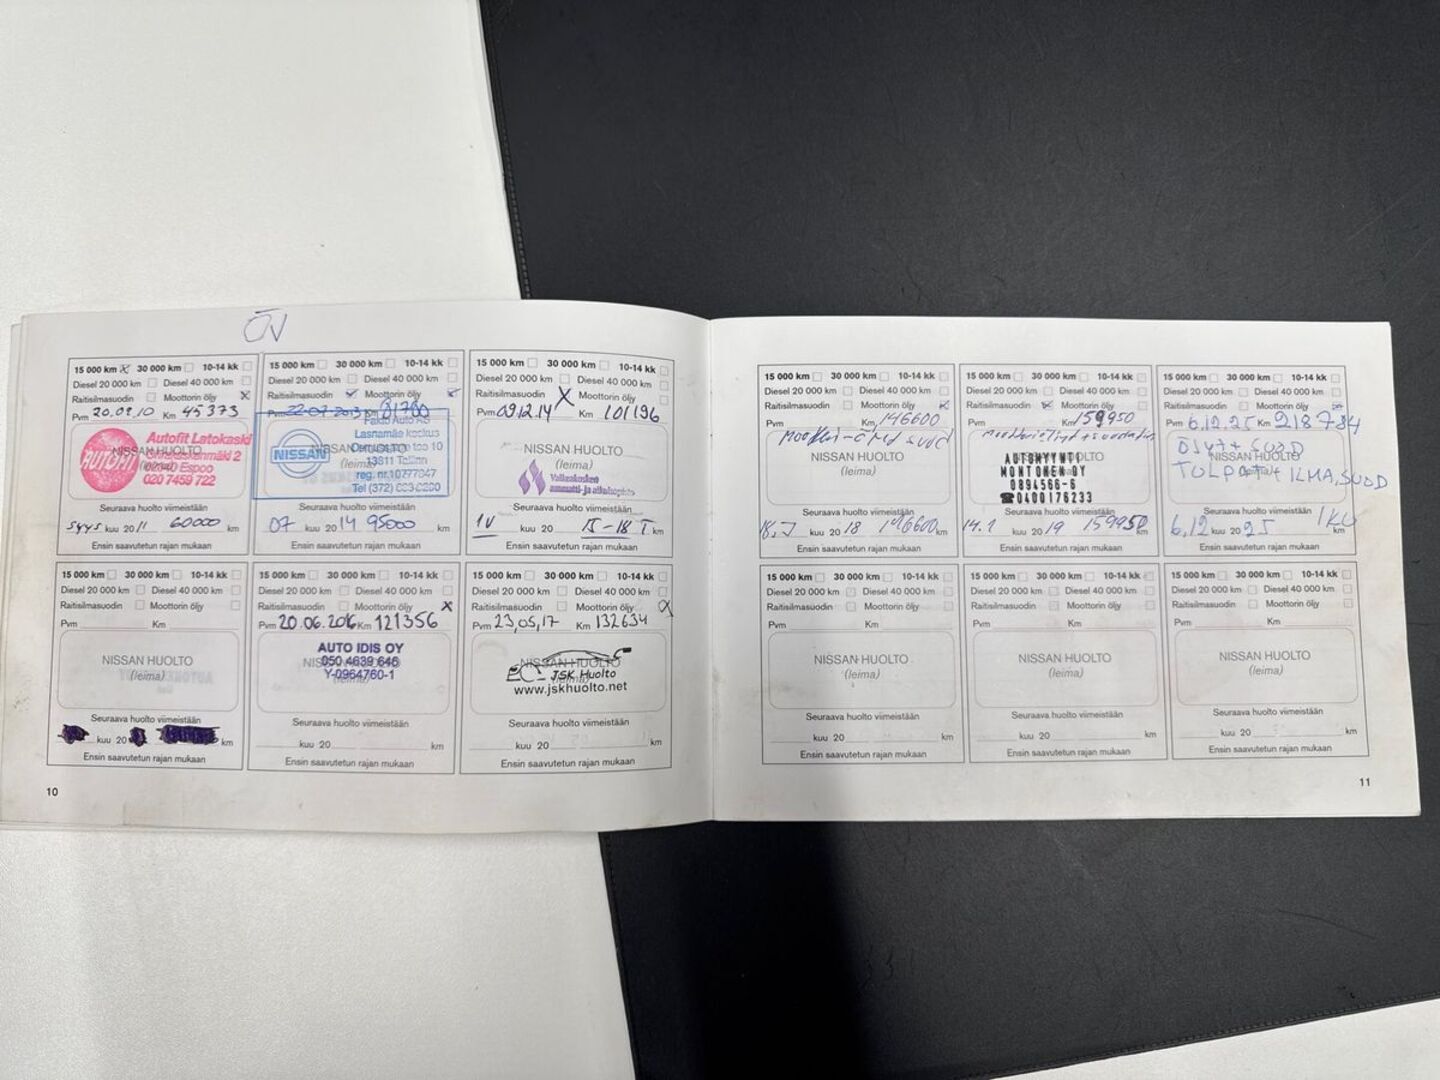 ÖV
15 000 km 30 000 km 10-14 kk
Diesel 20 000 km Diesel 40 000 km
Raitisilmasuodin Moottorin öljy
Pvm 20.09.10 Km 45373
Autofit Latokaski
NISSAN HUOLTO
(leima)
02340 Espoo
020 7459 722
AUTOFIT
Seuraava huolto viimeistään
syys kuu 2011 60000 km
Ensin saavutetun rajan mukaan
15 000 km 30 000 km 10-14 kk
Diesel 20 000 km Diesel 40 000 km
Raitisilmasuodin Moottorin öljy
Pvm 22-07-2013 Km 81700
Fakto Auto AS
Lasnamäe keskus
NISSAN
NISSAN HUOLTO
(leima)
13811 Tallinn
reg. nr.10777847
Tel (372)
Seuraava huolto viimeistään
07 kuu 2014 95000 km
Ensin saavutetun rajan mukaan
15 000 km 30 000 km 10-14 kk
Diesel 20 000 km Diesel 40 000 km
Raitisilmasuodin Moottorin öljy
Pvm 09.12.14 Km 101196
NISSAN HUOLTO
(leima)
Valkeakosken
ammatti- ja aikuisopisto
Seuraava huolto viimeistään
1V kuu 20 15-18 T. km
Ensin saavutetun rajan mukaan
15 000 km 30 000 km 10-14 kk
Diesel 20 000 km Diesel 40 000 km
Raitisilmasuodin Moottorin öljy
Pvm Km
NISSAN HUOLTO
(leima)
Seuraava huolto viimeistään
kuu 20 km
Ensin saavutetun rajan mukaan
15 000 km 30 000 km 10-14 kk
Diesel 20 000 km Diesel 40 000 km
Raitisilmasuodin Moottorin öljy
Pvm 20.06.2016 Km 121356
AUTO IDIS OY
NISSAN HUOLTO
050 4639 646
(leima)
Y-0964760-1
Seuraava huolto viimeistään
kuu 20 km
Ensin saavutetun rajan mukaan
15 000 km 30 000 km 10-14 kk
Diesel 20 000 km Diesel 40 000 km
Raitisilmasuodin Moottorin öljy
Pvm 23,05,17 Km 132634
NISSAN HUOLTO
JSK Huolto
www.jskhuolto.net
Seuraava huolto viimeistään
kuu 20 km
Ensin saavutetun rajan mukaan
10
15 000 km 30 000 km 10-14 kk
Diesel 20 000 km Diesel 40 000 km
Raitisilmasuodin Moottorin öljy
Pvm Km 146600
NISSAN HUOLTO
(leima)
Seuraava huolto viimeistään
kuu 2018 146600 km
Ensin saavutetun rajan mukaan
15 000 km 30 000 km 10-14 kk
Diesel 20 000 km Diesel 40 000 km
Raitisilmasuodin Moottorin öljy
Pvm Km 159950
AUTOMYYNTI
MONTONEN OY
0894566-6
☎0400176233
Seuraava huolto viimeistään
14.1 kuu 2019 159950 km
Ensin saavutetun rajan mukaan
15 000 km 30 000 km 10-14 kk
Diesel 20 000 km Diesel 40 000 km
Raitisilmasuodin Moottorin öljy
Pvm 6,12,25 Km 218784
ÖLJYT + SUOD
NISSAN HUOLTO
(leima)
TULPAT + ILMA,SUOD
Seuraava huolto viimeistään
6,12 kuu 2025 km
Ensin saavutetun rajan mukaan
15 000 km 30 000 km 10-14 kk
Diesel 20 000 km Diesel 40 000 km
Raitisilmasuodin Moottorin öljy
Pvm Km
NISSAN HUOLTO
(leima)
Seuraava huolto viimeistään
kuu 20 km
Ensin saavutetun rajan mukaan
15 000 km 30 000 km 10-14 kk
Diesel 20 000 km Diesel 40 000 km
Raitisilmasuodin Moottorin öljy
Pvm Km
NISSAN HUOLTO
(leima)
Seuraava huolto viimeistään
kuu 20 km
Ensin saavutetun rajan mukaan
15 000 km 30 000 km 10-14 kk
Diesel 20 000 km Diesel 40 000 km
Raitisilmasuodin Moottorin öljy
Pvm Km
NISSAN HUOLTO
(leima)
Seuraava huolto viimeistään
kuu 20 km
Ensin saavutetun rajan mukaan
11